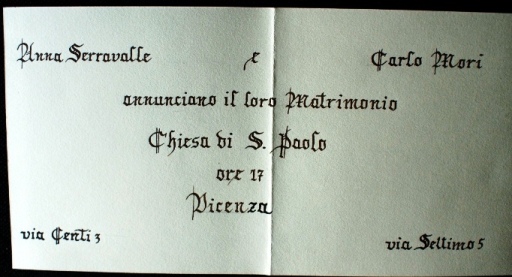 Anna Serravalle e Carlo Mori
annunciano il loro Matrimonio
Chiesa di S. Paolo
ore 17
Vicenza
via Centi 3 via Settimo 5